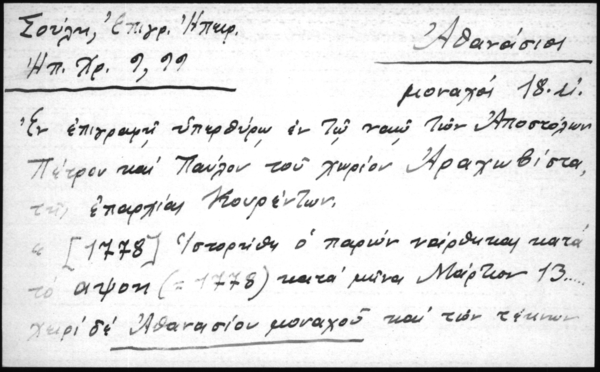 Σούλη, Ἐπιγρ. Ἠπείρ.
Ἠπ. Χρ. 9, 99
Ἀθανάσιος
μοναχός 18. αἰ.
Ἐν ἐπιγραφῇ ὑπερθύρῳ ἐν τῷ ναῷ τῶν Ἀποστόλων
Πέτρου καί Παύλου τοῦ χωρίου Ἀραχωβίστα,
τῆς ἐπαρχίας Κουρέντων.
« [1778] Ἱστορήθη ὁ παρών νάρθηκας κατά
τό αψοη (= 1778) κατά μῆνα Μάρτιον 13.....
χειρί δέ Ἀθανασίου μοναχοῦ καί τῶν τέκνων